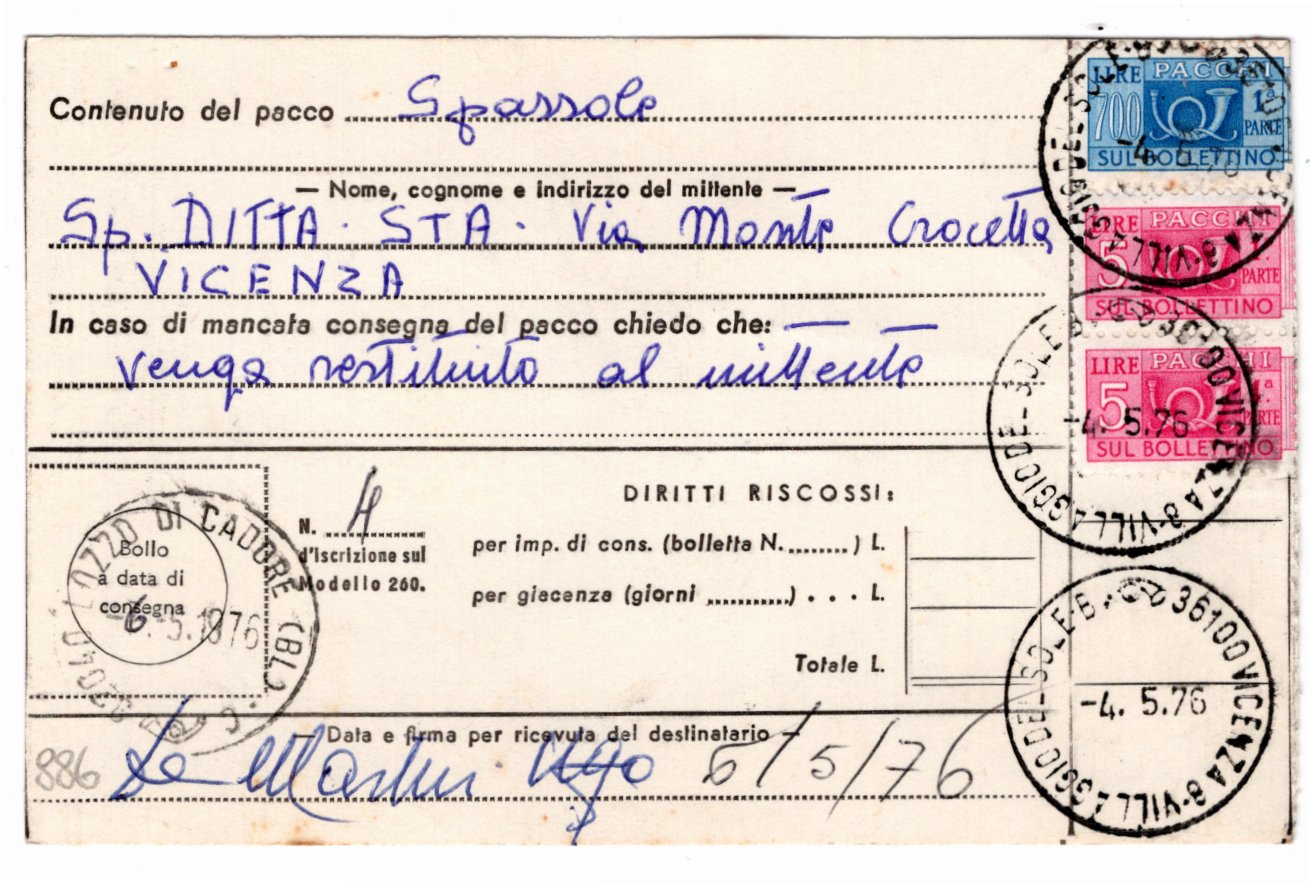 Contenuto del pacco Spassole
— Nome, cognome e indirizzo del mittente —
Sp. DITTA · STA · Via Monte Crocetta
VICENZA
In caso di mancata consegna del pacco chiedo che:
venga restituito al mittente
LIRE PACCHI
700 1ª PARTE
SUL BOLLETTINO
LIRE PACCHI
5 1ª PARTE
SUL BOLLETTINO
LIRE PACCHI
5 1ª PARTE
SUL BOLLETTINO
36100 VICENZA 8 - VILLAGGIO DEL SOLE - B
-4. 5.76
36100 VICENZA 8 - VILLAGGIO DEL SOLE - B
-4. 5.76
36100 VICENZA 8 - VILLAGGIO DEL SOLE - B
-4. 5.76
Bollo
a data di
consegna
32040 LOZZO DI CADORE (BL)
-6.-5.1976
N. 4
d'iscrizione sul
Modello 260.
DIRITTI RISCOSSI:
per imp. di cons. (bolletta N. ........) L.
per giacenza (giorni ............) . . . L.
Totale L.
— Data e firma per ricevuta del destinatario —
886
De Martin Ugo 6/5/76